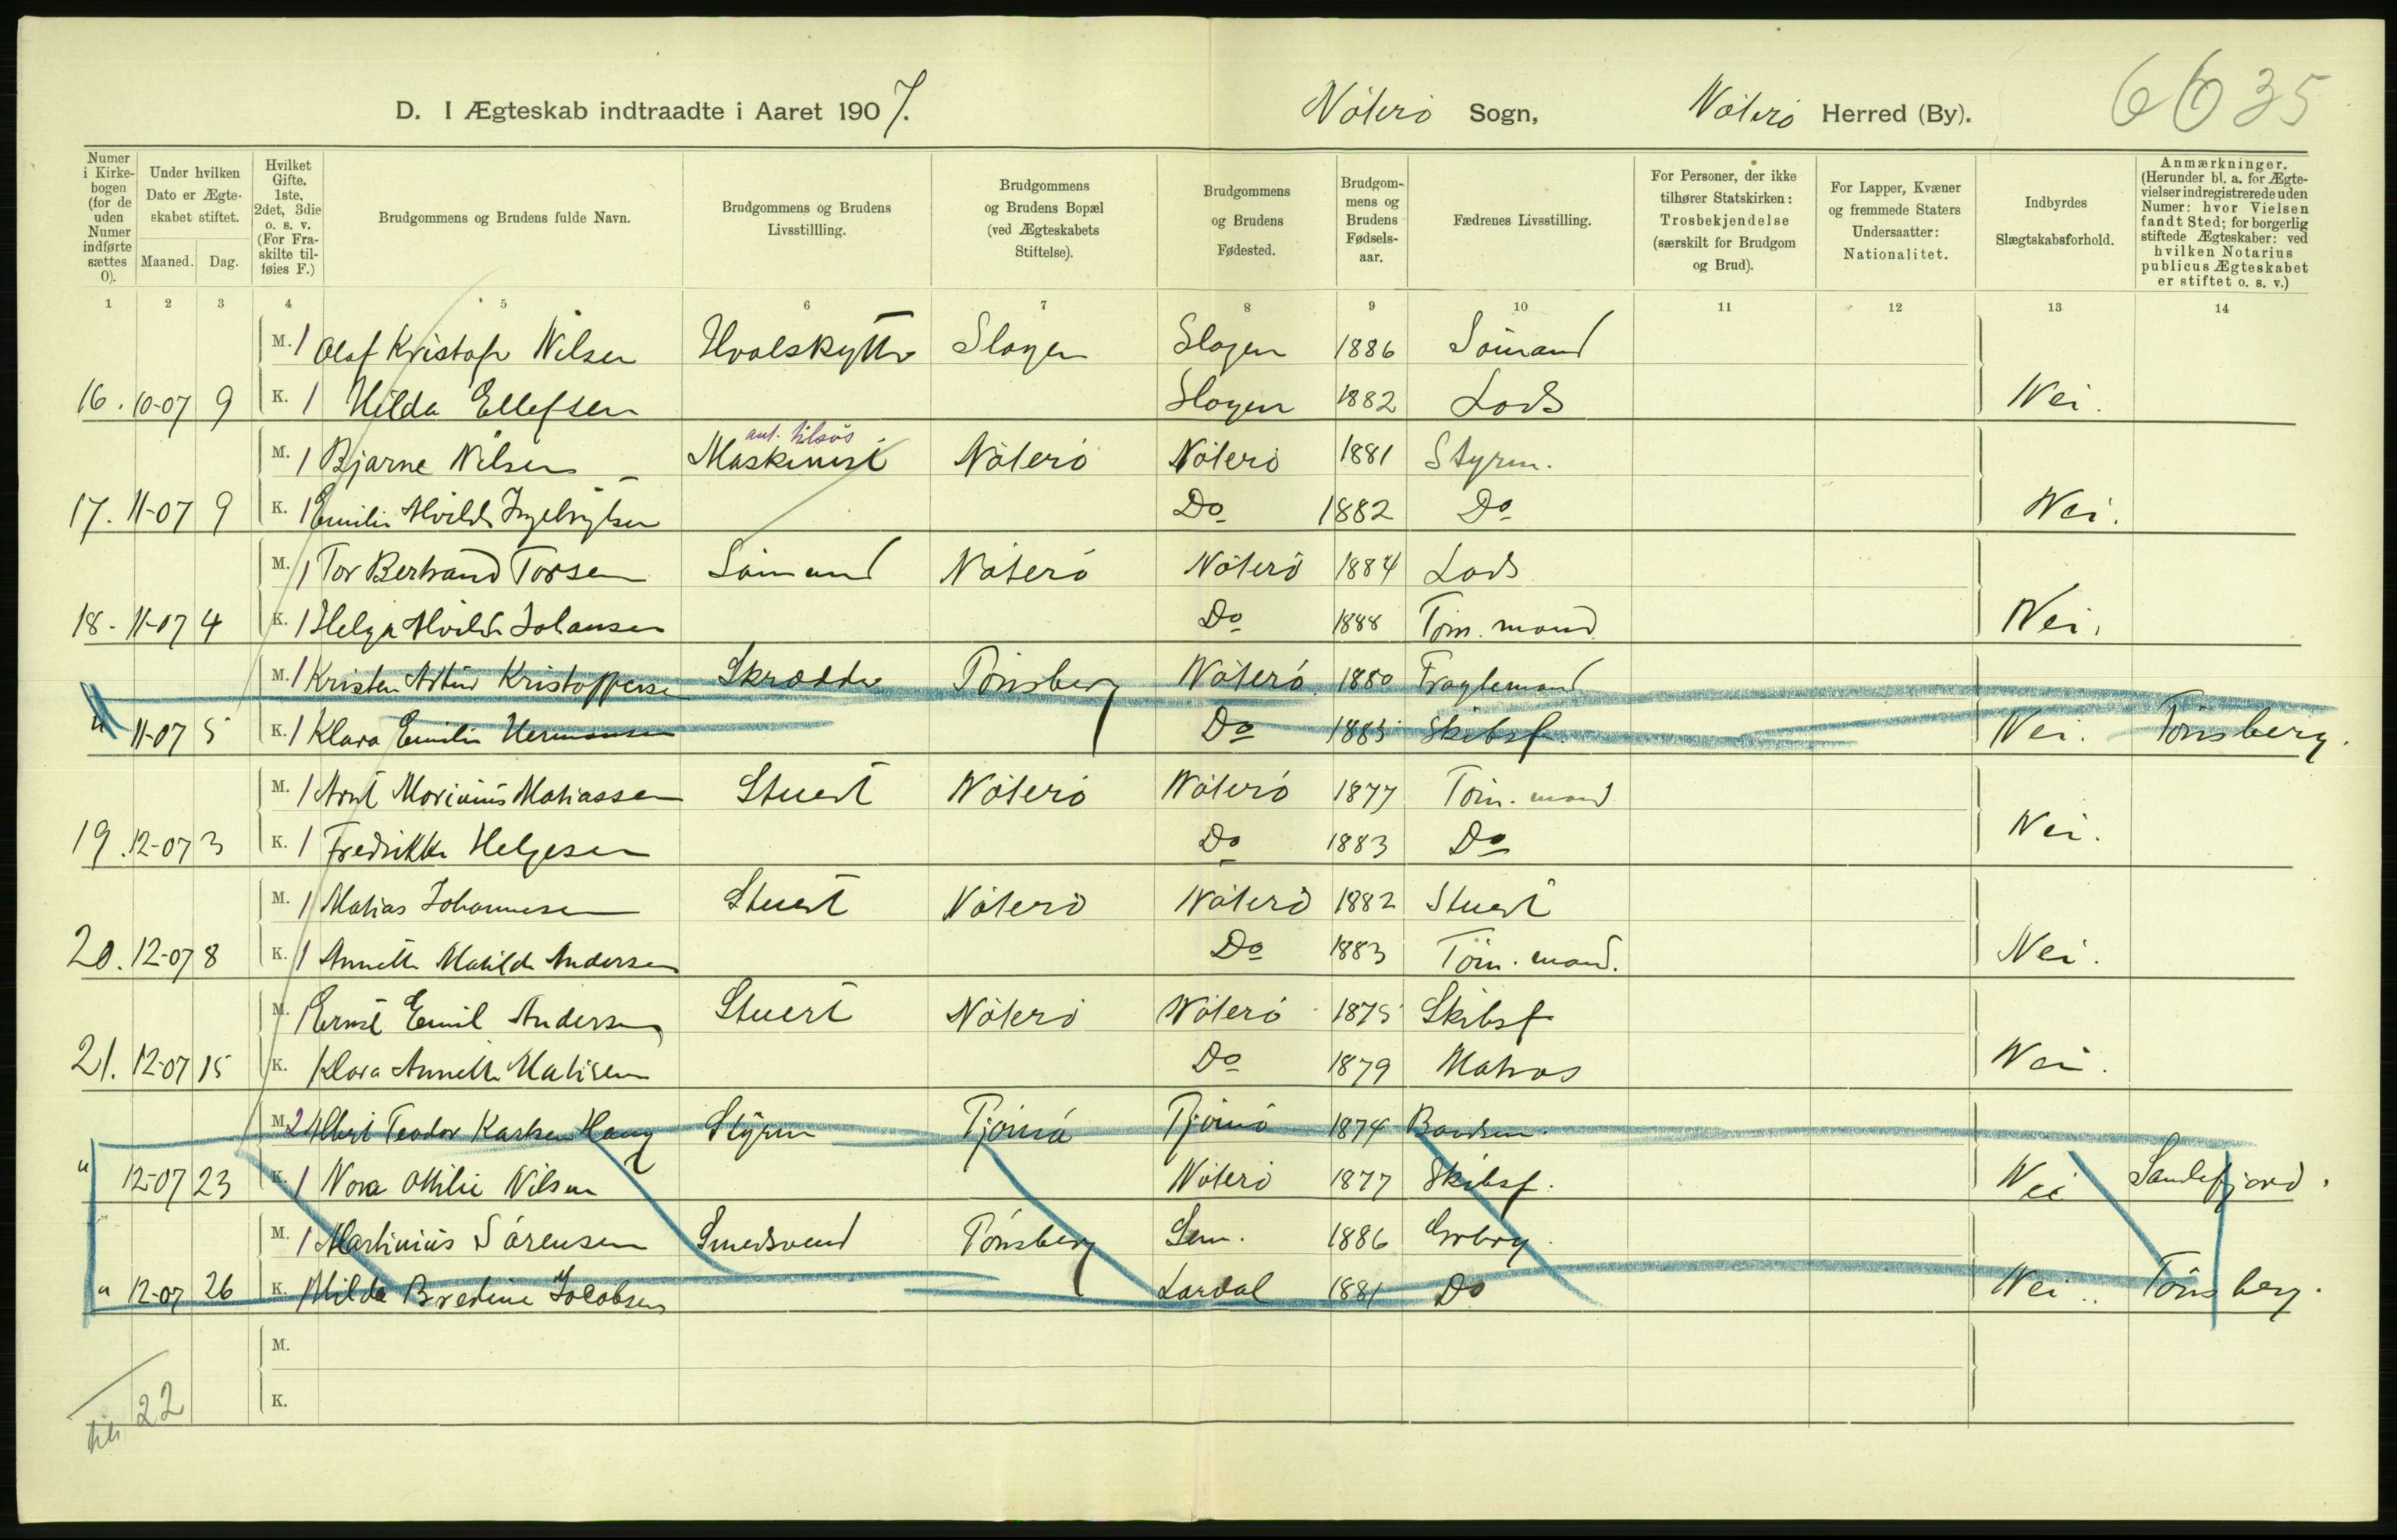 D. I Ægteskab indtraadte i Aaret 1907. Nöterö Sogn, Nöterö Herred (By). 6635
Numer i Kirkebogen (for de uden Numer indførte sættes 0).
Under hvilken Dato er Ægteskabet stiftet.
Maaned. Dag.
Hvilket Gifte. 1ste, 2det, 3die o. s. v. (For Fraskilte tilføies F.)
Brudgommens og Brudens fulde Navn.
Brudgommens og Brudens Livsstillling.
Brudgommens og Brudens Bopæl (ved Ægteskabets Stiftelse).
Brudgommens og Brudens Fødested.
Brudgommens og Brudens Fødselsaar.
Fædrenes Livsstilling.
For Personer, der ikke tilhører Statskirken: Trosbekjendelse (særskilt for Brudgom og Brud).
For Lapper, Kvæner og fremmede Staters Undersaatter: Nationalitet.
Indbyrdes Slægtskabsforhold.
Anmærkninger. (Herunder bl. a. for Ægtevielser indregistrerede uden Numer: hvor Vielsen fandt Sted; for borgerlig stiftede Ægteskaber: ved hvilken Notarius publicus Ægteskabet er stiftet o. s. v.)
1 2 3 4 5 6 7 8 9 10 11 12 13 14
M. 1 Olaf Kristofr Nilsen Hvalskytter Slagen Slagen 1886 Sömand
16. 10-07 9 K. 1 Hilda Ellefsen Slagen 1882 Lods Nei.
M. 1 Bjarne Nilsen Maskinist Nöterö Nöterö 1881 Styrm.
17. 11-07 9 K. 1 Emilie Alvilde Do 1882 Do Nei.
M. 1 Tor Bertrand Torsen Sömand Nöterö Nöterö 1884 Lods
18. 11-07 4 K. 1 Helga Alvilde Johansen Do 1888 Töm. mand Nei.
M. 1 Kristen Artur Kristoffersen Skrædder Tönsberg Nöterö 1880 Fragtemand
" 11-07 5 K. 1 Klara Emilie Hermansen Do 1885 Skibsf. Nei. Tönsberg.
M. 1 Arnt Marinius Matiassen Stuert Nöterö Nöterö 1877 Töm. mand
19. 12-07 3 K. 1 Fredrikke Helgesen Do 1883 Do Nei.
M. 1 Matias Johannesen Stuert Nöterö Nöterö 1882 Stuert
20. 12-07 8 K. 1 Annette Matilde Andersen Do 1883 Töm. mand. Nei.
M. 1 Ernst Emil Andersen Stuert Nöterö Nöterö 1875 Skibsf
21. 12-07 15 K. 1 Klara Annette Matisen Do 1879 Matros Nei.
M. 2 Albert Teodor Karlsen Haug Styrm Tjömö Tjömö 1874
" 12-07 23 K. 1 Nora Otilie Nilsen Nöterö 1877 Skibsf. Nei Sandefjord.
M. 1 Martinius Sörensen Smedsvend Tönsberg Sem. 1886
" 12-07 26 K. 1 Hilda Bredine Jacobsen Lardal 1881 Do Nei. Tönsberg.
M.
K.
22